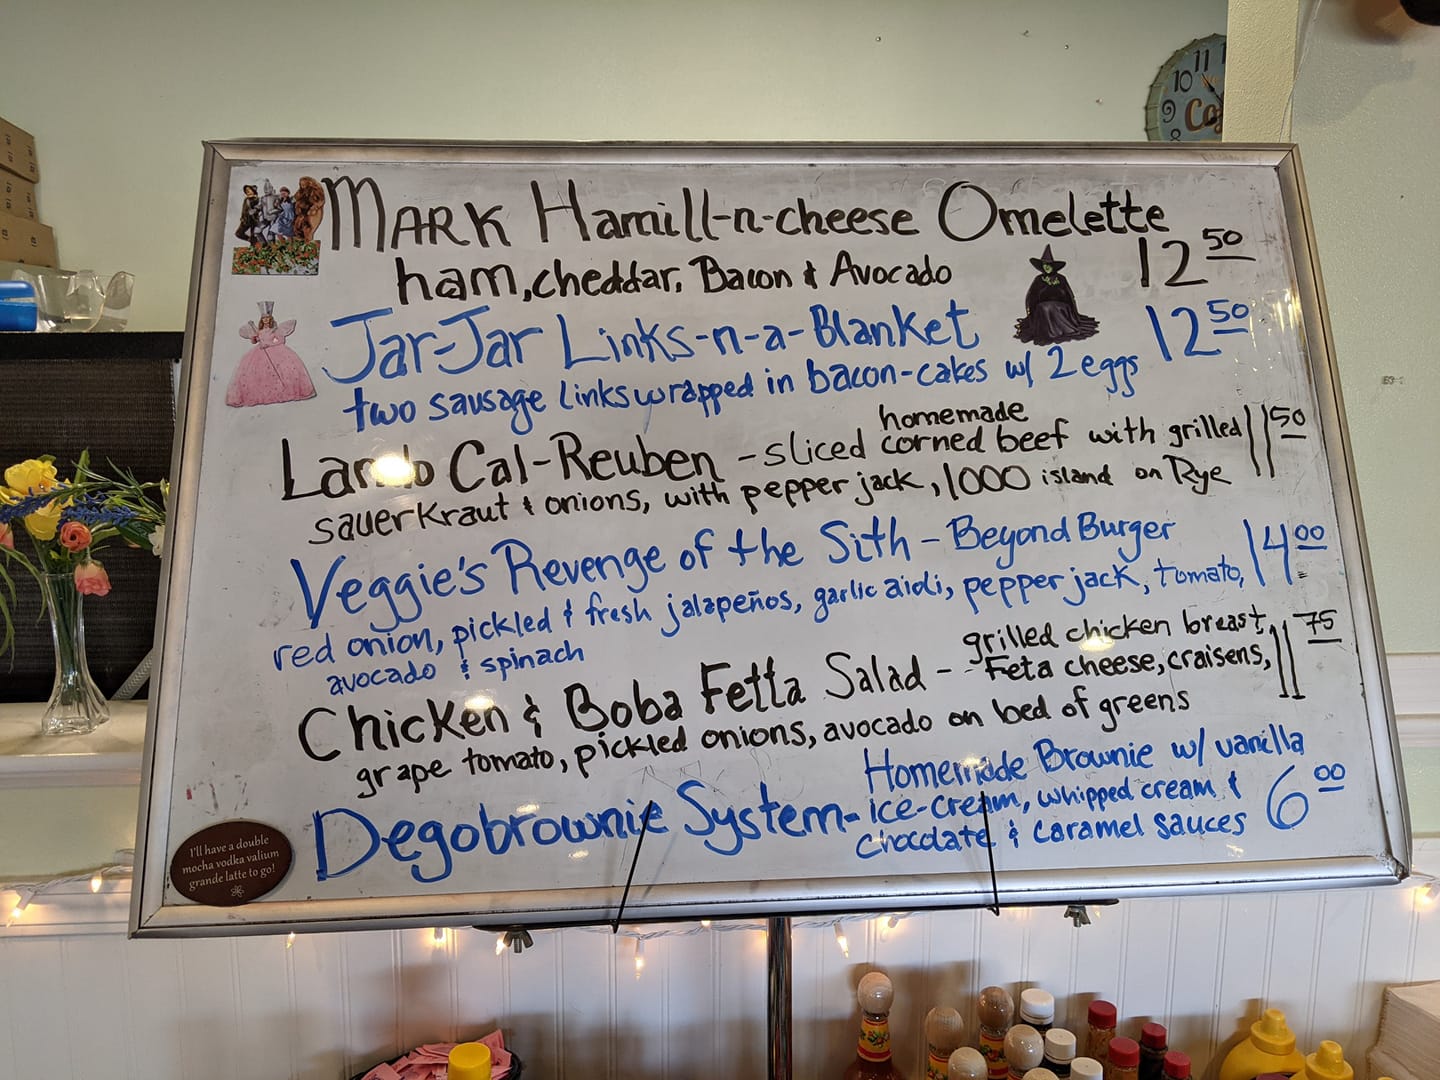 MARK Hamill-n-cheese Omelette
ham, cheddar, Bacon & Avocado 12 50
Jar-Jar Links-n-a-Blanket 12 50
two sausage links wrapped in bacon-cakes w/ 2 eggs
homemade
Lando Cal-Reuben - sliced corned beef with grilled 11 50
sauerkraut & onions, with pepper jack, 1000 island on Rye
Veggie's Revenge of the Sith - Beyond Burger 14 00
red onion, pickled & fresh jalapeños, garlic aioli, pepper jack, tomato,
avocado & spinach
Chicken & Boba Fetta Salad - grilled chicken breast, 11 75
Feta cheese, craisens,
grape tomato, pickled onions, avocado on bed of greens
Degobrownie System - Homemade Brownie w/ vanilla
ice-cream, whipped cream & 6 00
chocolate & caramel sauces
I'll have a double
mocha vodka valium
grande latte to go!
10 11
9
8
Co